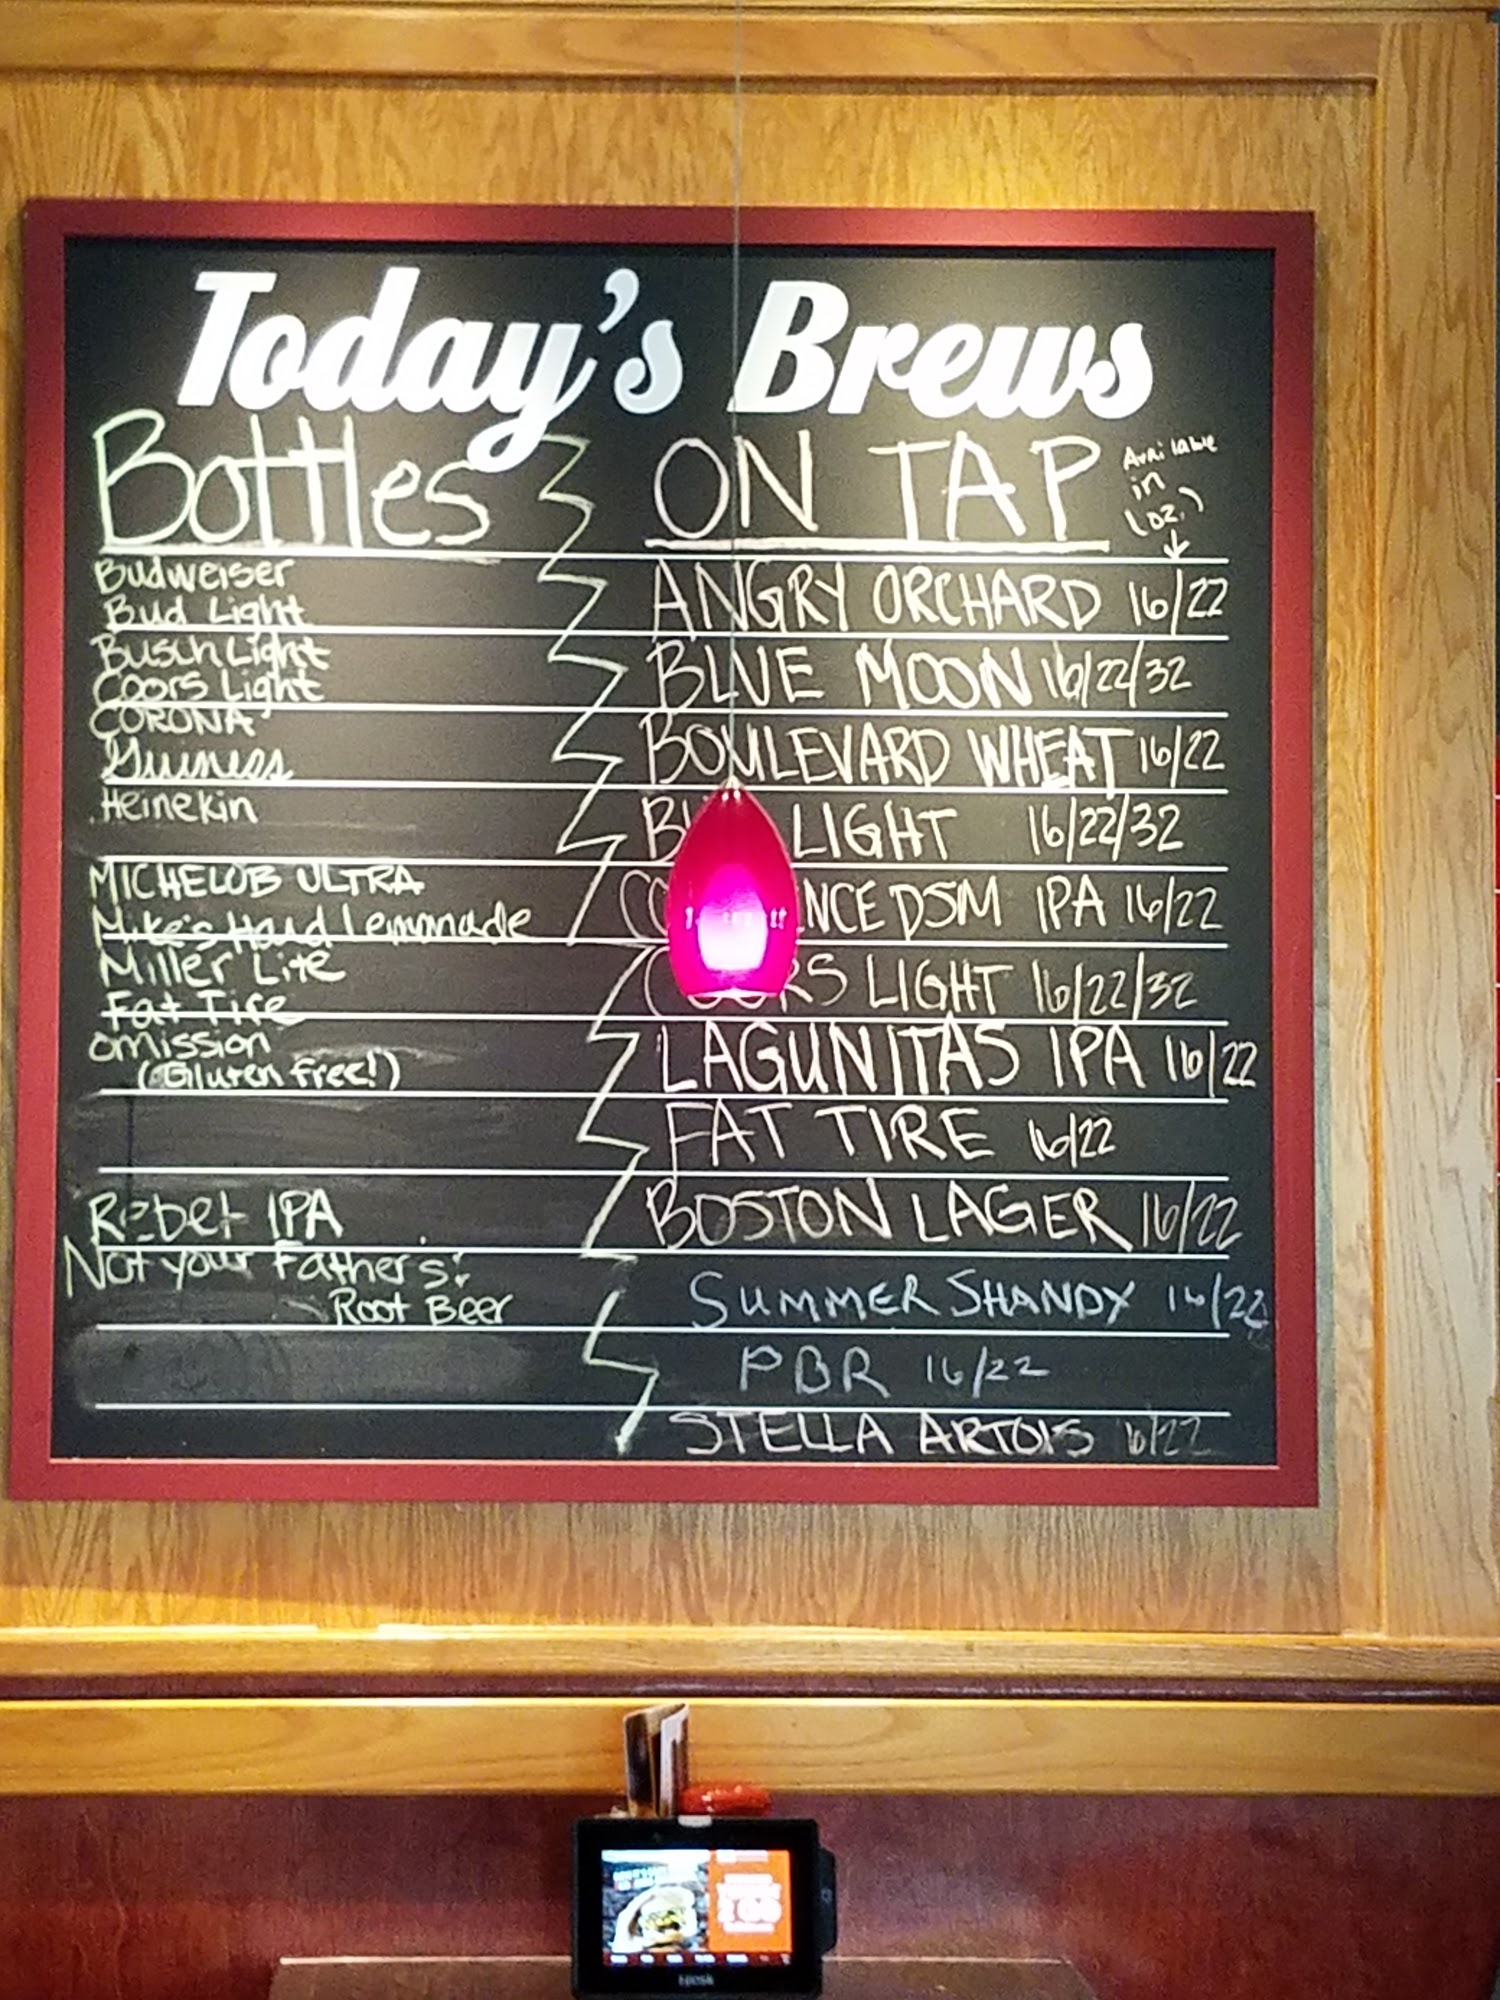 Today's Brews
Bottles
Budweiser
Bud Light
Busch Light
Coors Light
CORONA
Guiness
Heinekin
MICHELOB ULTRA
Mike's Hard Lemonade
Miller Lite
Fat Tire
Omission
(Gluten free!)
Rebel IPA
Not your Father's:
Root Beer
ON TAP
Available
in
(oz.)
ANGRY ORCHARD 16/22
BLUE MOON 16/22/32
BOULEVARD WHEAT 16/22
LIGHT 16/22/32
DSM IPA 16/22
LIGHT 16/22/32
LAGUNITAS IPA 16/22
FAT TIRE 16/22
BOSTON LAGER 16/22
SUMMER SHANDY 16/22
PBR 16/22
STELLA ARTOIS 16/22